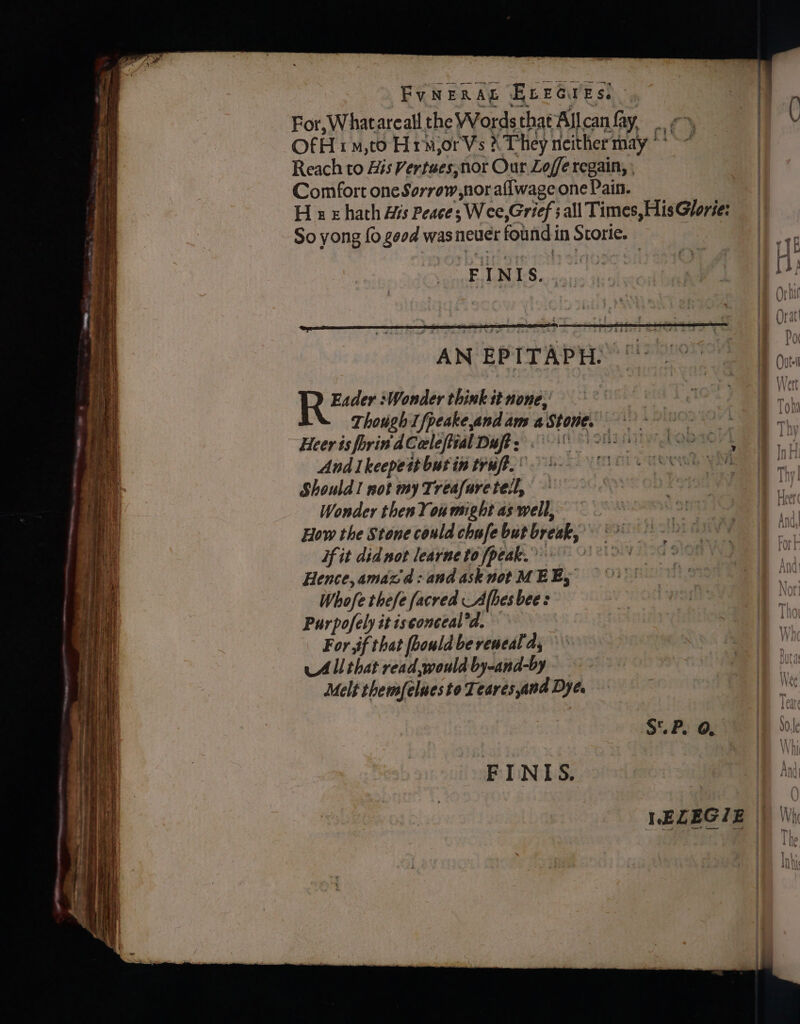 FVNERAL ELEGIES.
For, What are all the VVords that All can ſay,
Of HIM, to HIM, or Vs? They neither may
Reach to His Vertues, nor Our Loſſe regain,
Comfort one Sorrow, nor aſſwage one Pain.
HEE hath His Peace; Wee, Grief; all Times, His Glorie:
So yong ſo good was neuer found in Storie.
FINIS.
AN EPITAPH.
REader: Wonder think it none,
Though I ſpeake, and am a Stone.
Heer is ſhrin'd Cœleſtial Duſt:
And I keepe it but in truſt.
Should I not my Treaſure tell,
Wonder then You might as well,
How the Stone could chuſe but break,
if it did not learne to ſpeak.
Hence, amaz'd: and ask not MEE,
Whoſe theſe ſacred Aſhes bee:
Purpoſely it is conceal'd.
For, if that ſhould be reueal'd,
All that read, would by-and-by
Melt themſelues to Teares, and Dye.
Sr. P. O.
FINIS.
I. ELEGIE